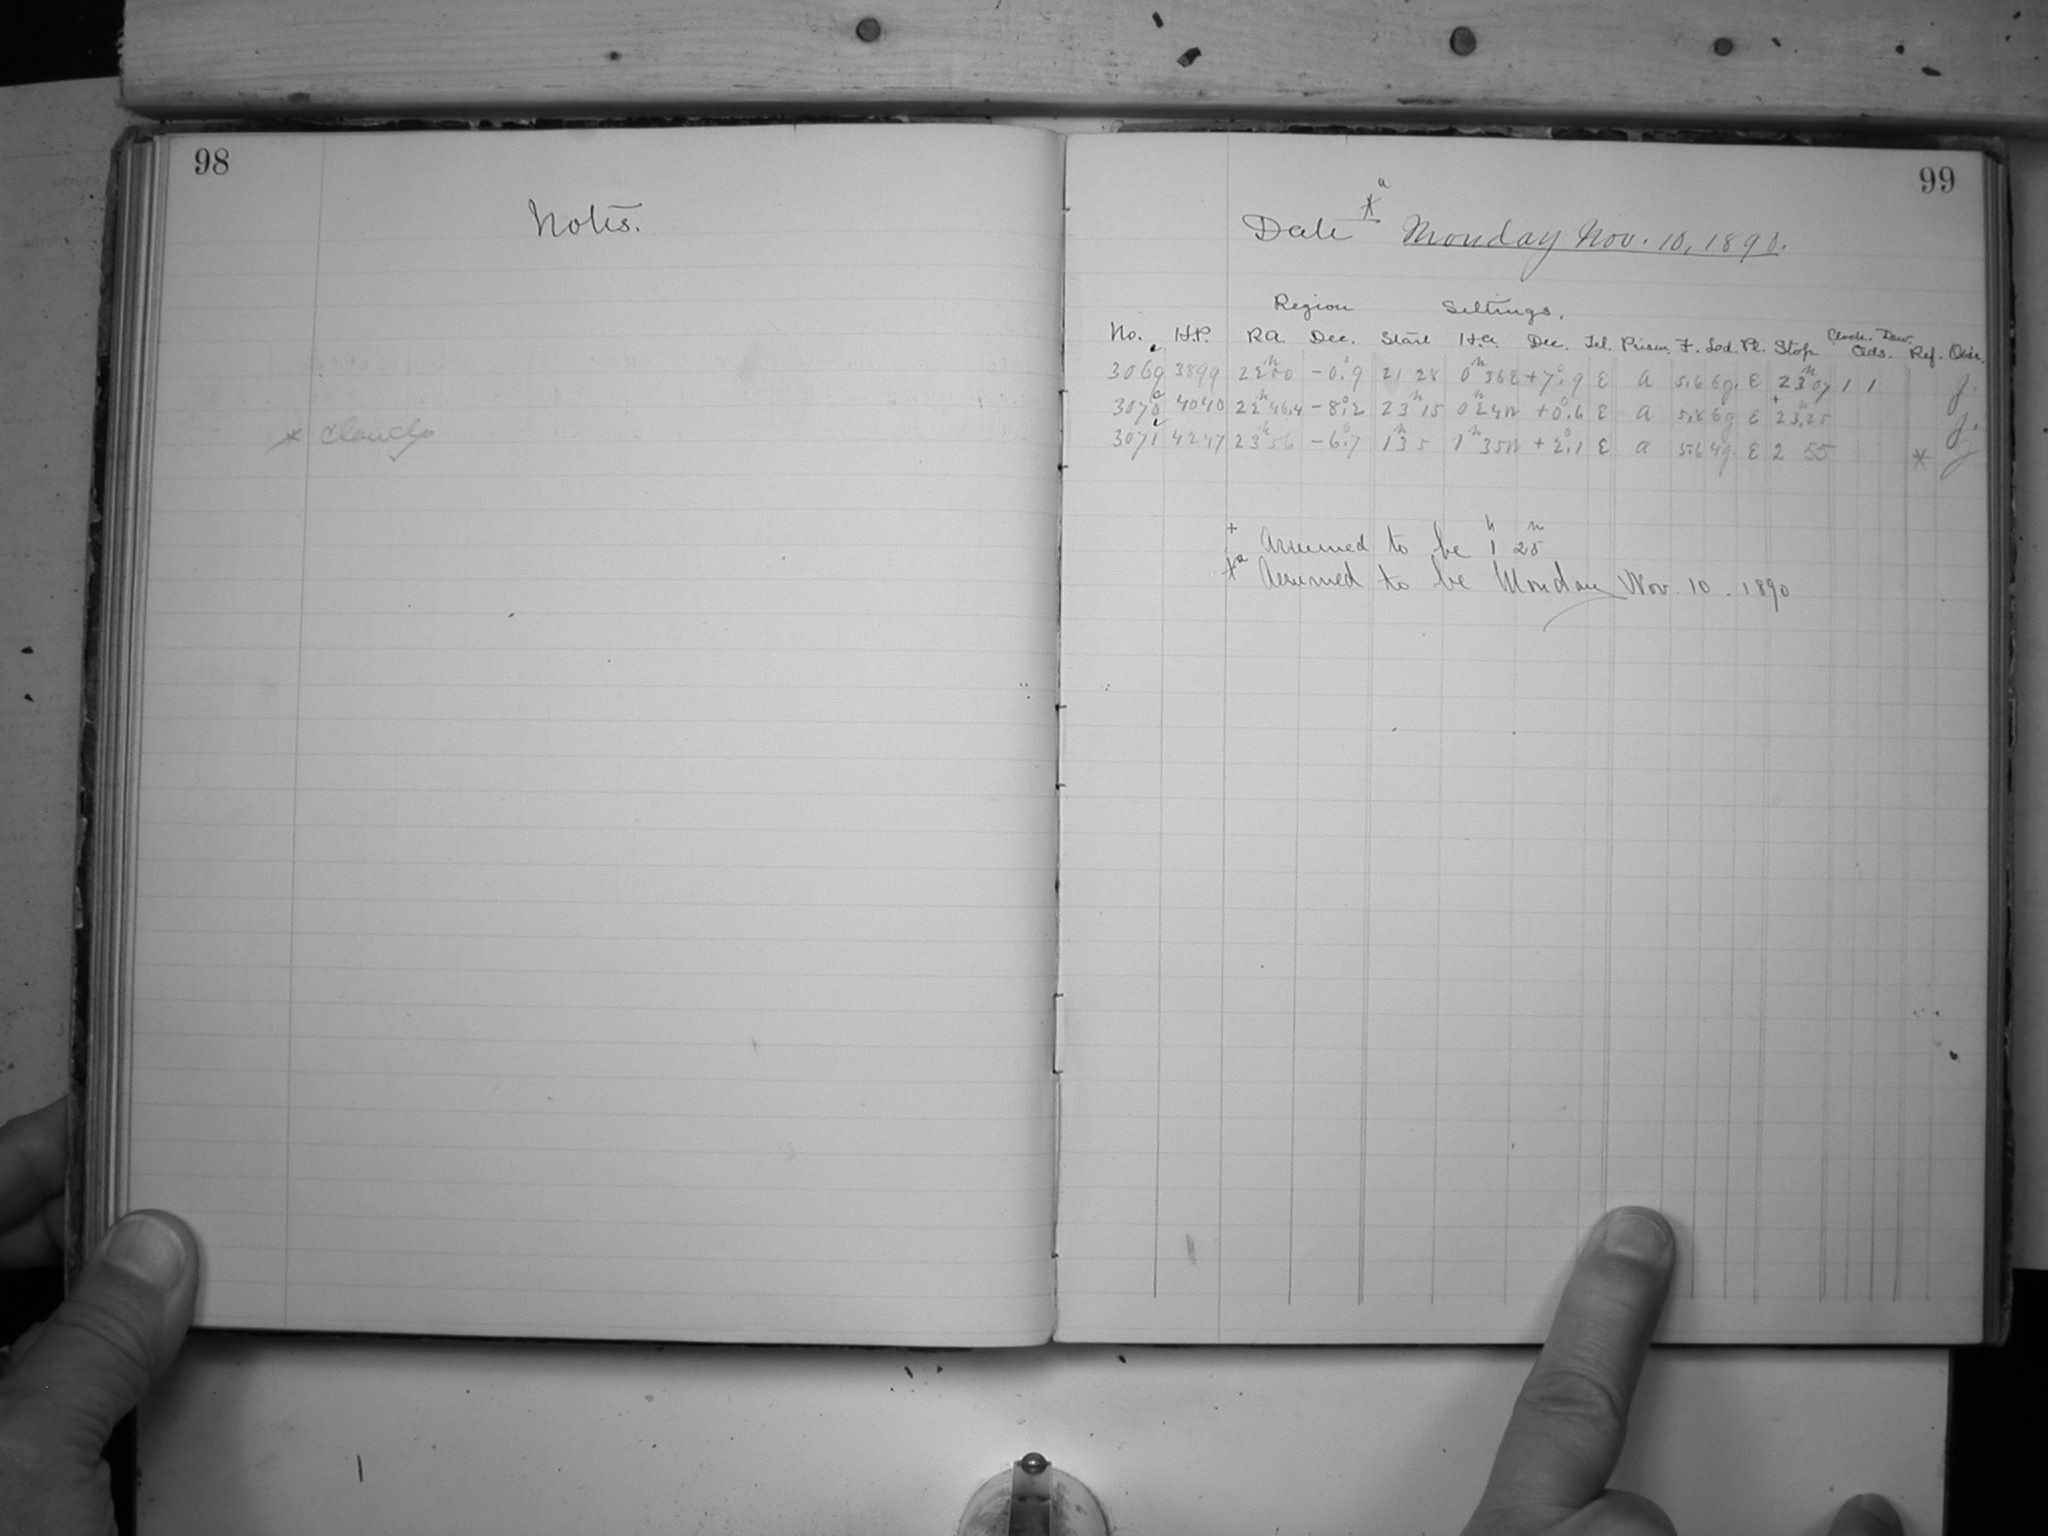 98
Notes.
* Clouds
99
Date *a Monday Nov. 10, 1890.
Region Settings.
No. H.P. RA Dec. Start H.A. Dec. Tel. Prism. F. Sod. Pl. Stop Clock. Dew. Clds. Ref. Obsr.
3069 3899 22h00 -0°.9 21 28 0h36E +7°.9 E A 5.6 6g. E 23h07 1 1 J.
3070 4040 22h46.4 -8°.2 23h15 0h24W +0°.6 E A 5.6 6g E +23h25 J.
3071 4247 23h56 -6°.7 1h35 1h35W +2°.1 E A 5.6 4g. E 2 55 * J
+ Assumed to be 1h 25m
*a Assumed to be Monday Nov. 10. 1890